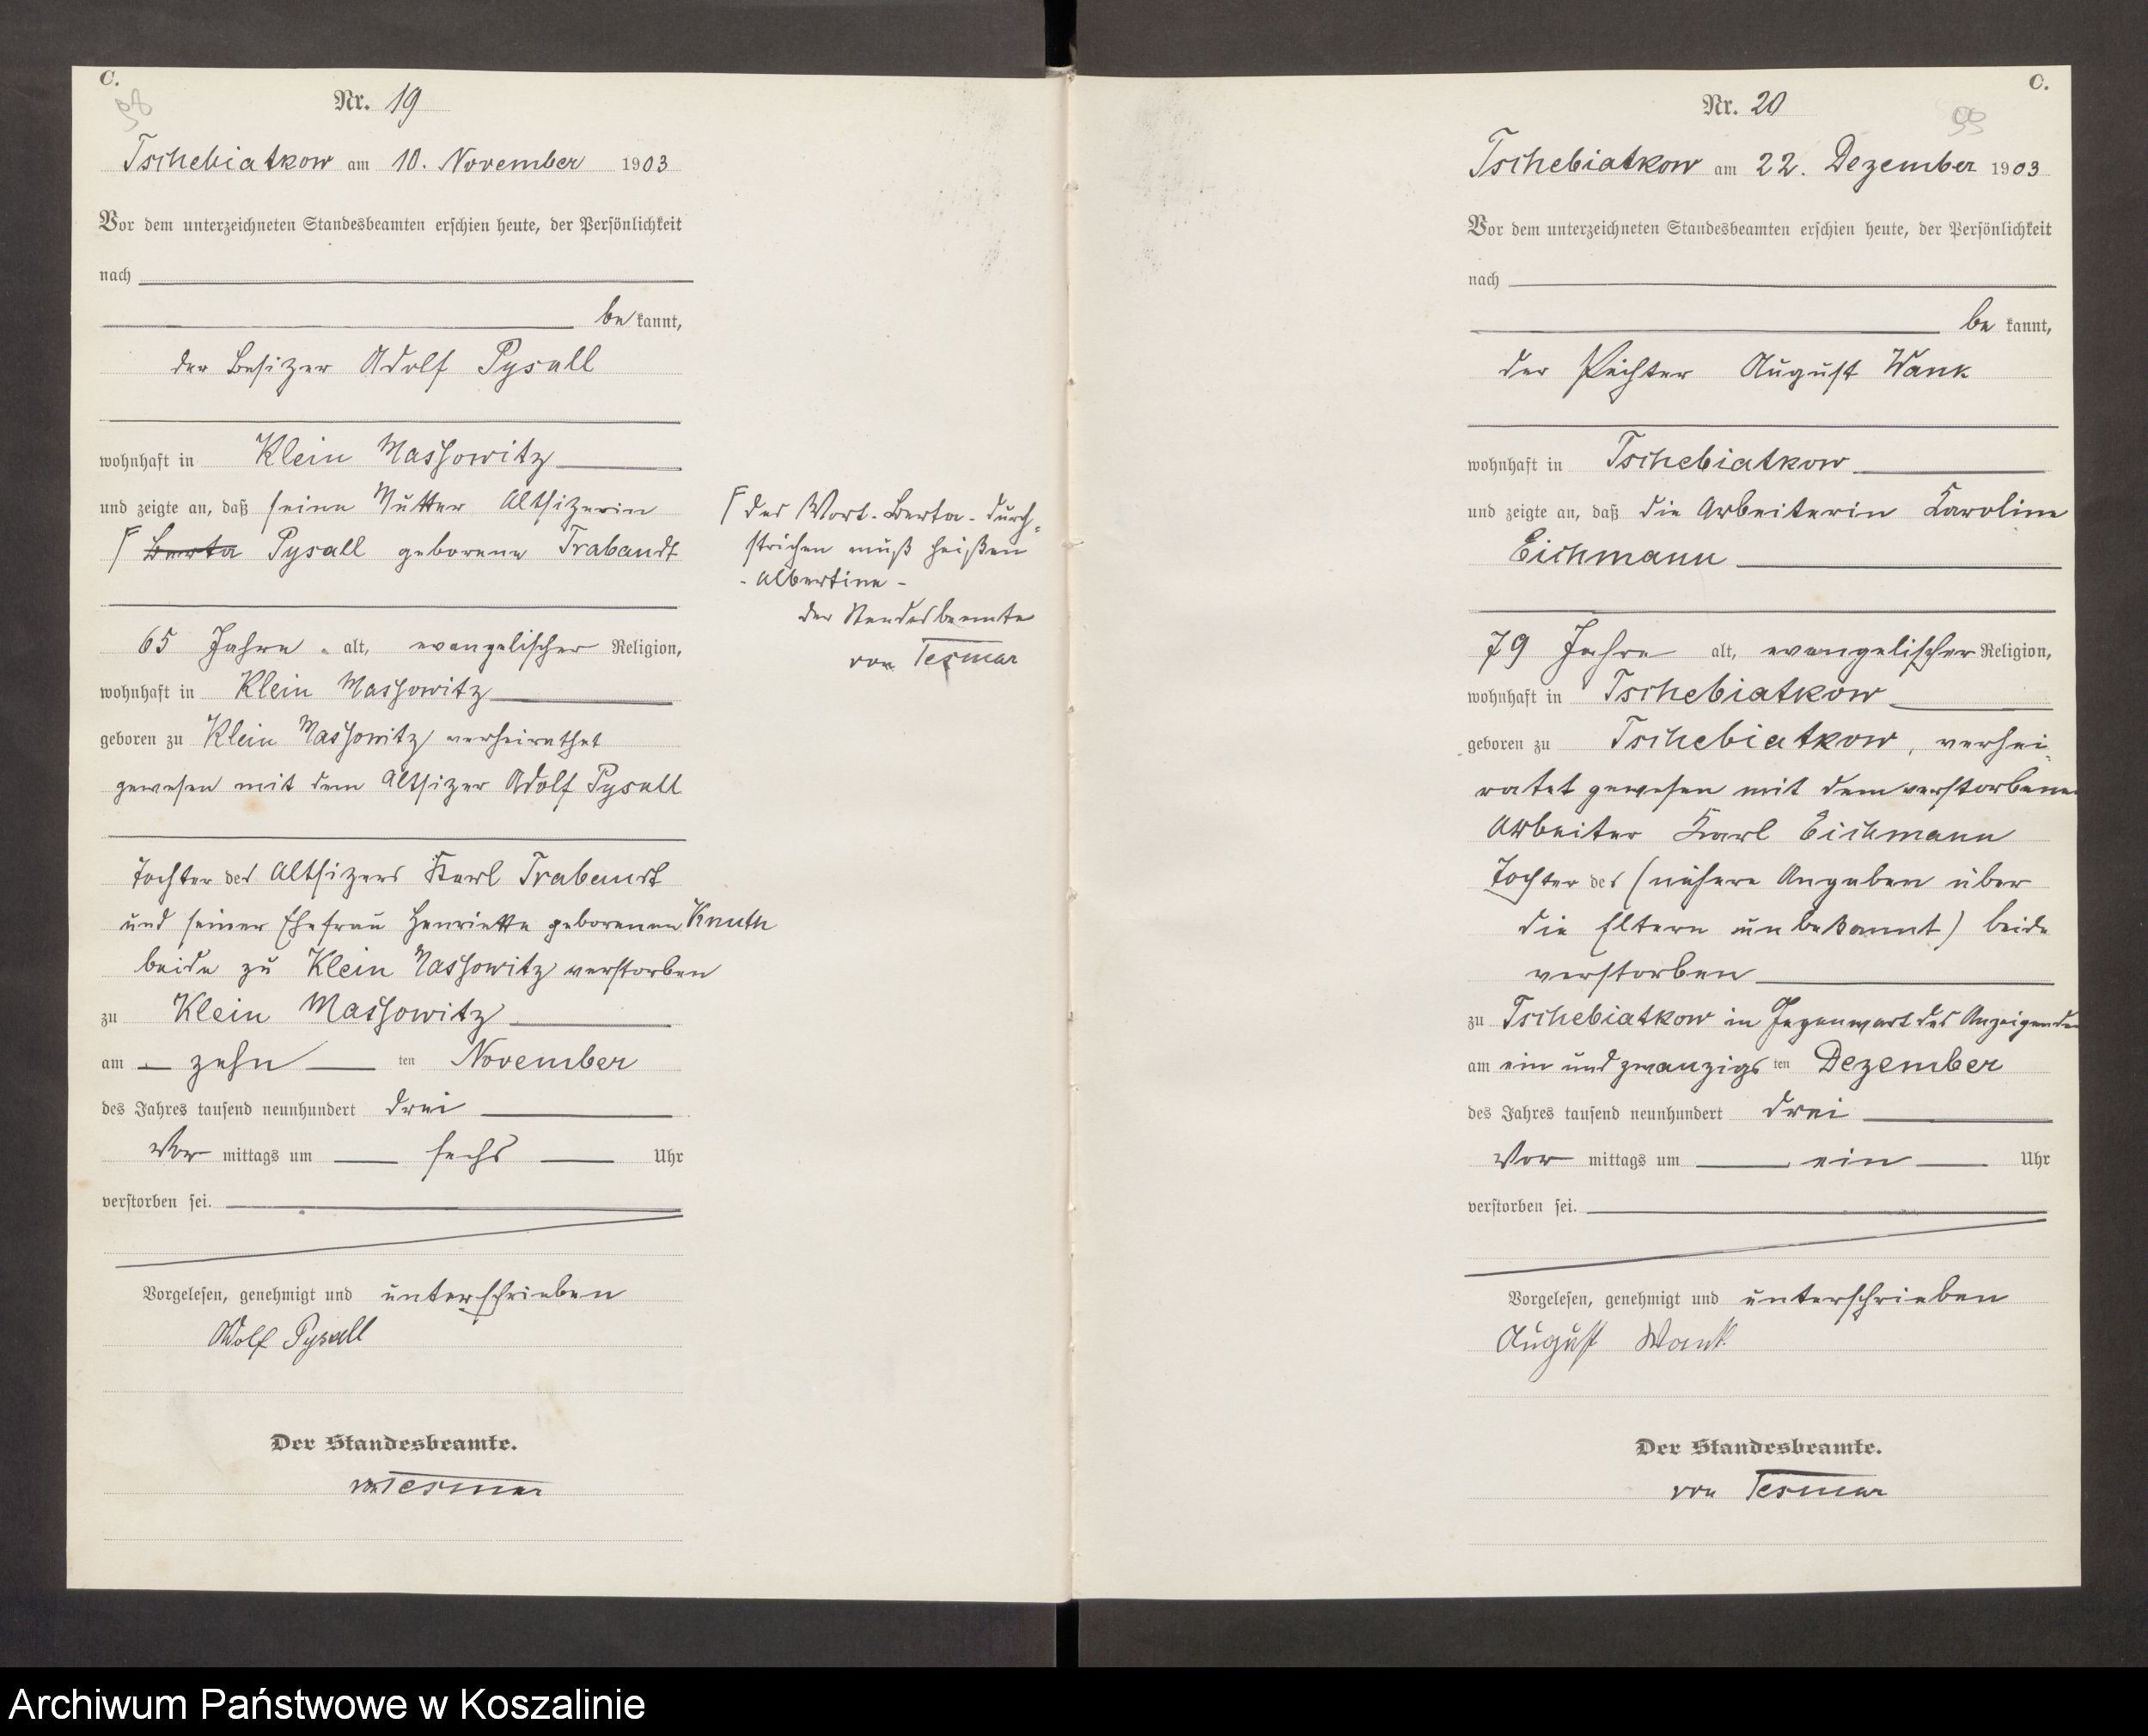 C.
98
Nr. 19
Tschebiatkow am 10. November 1903
Vor dem unterzeichneten Standesbeamten erschien heute, der Persönlichkeit
nach
be kannt,
der Besitzer Adolf Pysall
wohnhaft in Klein Massowitz
und zeigte an, daß seine Mutter Altsitzerin
Γ Berta Pysall geborene Trabandt
65 Jahre alt, evangelischer Religion,
wohnhaft in Klein Massowitz
geboren zu Klein Massowitz verheirathet
gewesen mit dem Altsitzer Adolf Pysall
Tochter des Altsitzers Karl Trabandt
und seiner Ehefrau Henriette geborenen Knuth
beide zu Klein Massowitz verstorben
zu Klein Massowitz
am zehn ten November
des Jahres tausend neunhundert drei
Vor mittags um sechs Uhr
verstorben sei.
Vorgelesen, genehmigt und unterschrieben
Adolf Pysall
Der Standesbeamte.
von Tesmar
Γ das Wort - Berta - durch-
strichen muß heißen
- Albertine -
der Standesbeamte
von Tesmar
C.
99
Nr. 20
Tschebiatkow am 22. Dezember 1903
Vor dem unterzeichneten Standesbeamten erschien heute, der Persönlichkeit
nach
be kannt,
der Pächter August Wank
wohnhaft in Tschebiatkow
und zeigte an, daß die Arbeiterin Karoline
Eichmann
79 Jahre alt, evangelischer Religion,
wohnhaft in Tschebiatkow
geboren zu Tschebiatkow, verhei-
ratet gewesen mit dem verstorbenen
Arbeiter Karl Eichmann
Tochter des (nähere Angaben über
die Eltern unbekannt) beide
verstorben
zu Tschebiatkow in Gegenwart des Anzeigenden
am ein und zwanzigs ten Dezember
des Jahres tausend neunhundert drei
Vor mittags um ein Uhr
verstorben sei.
Vorgelesen, genehmigt und unterschrieben
August Wank
Der Standesbeamte.
von Tesmar
Archiwum Państwowe w Koszalinie